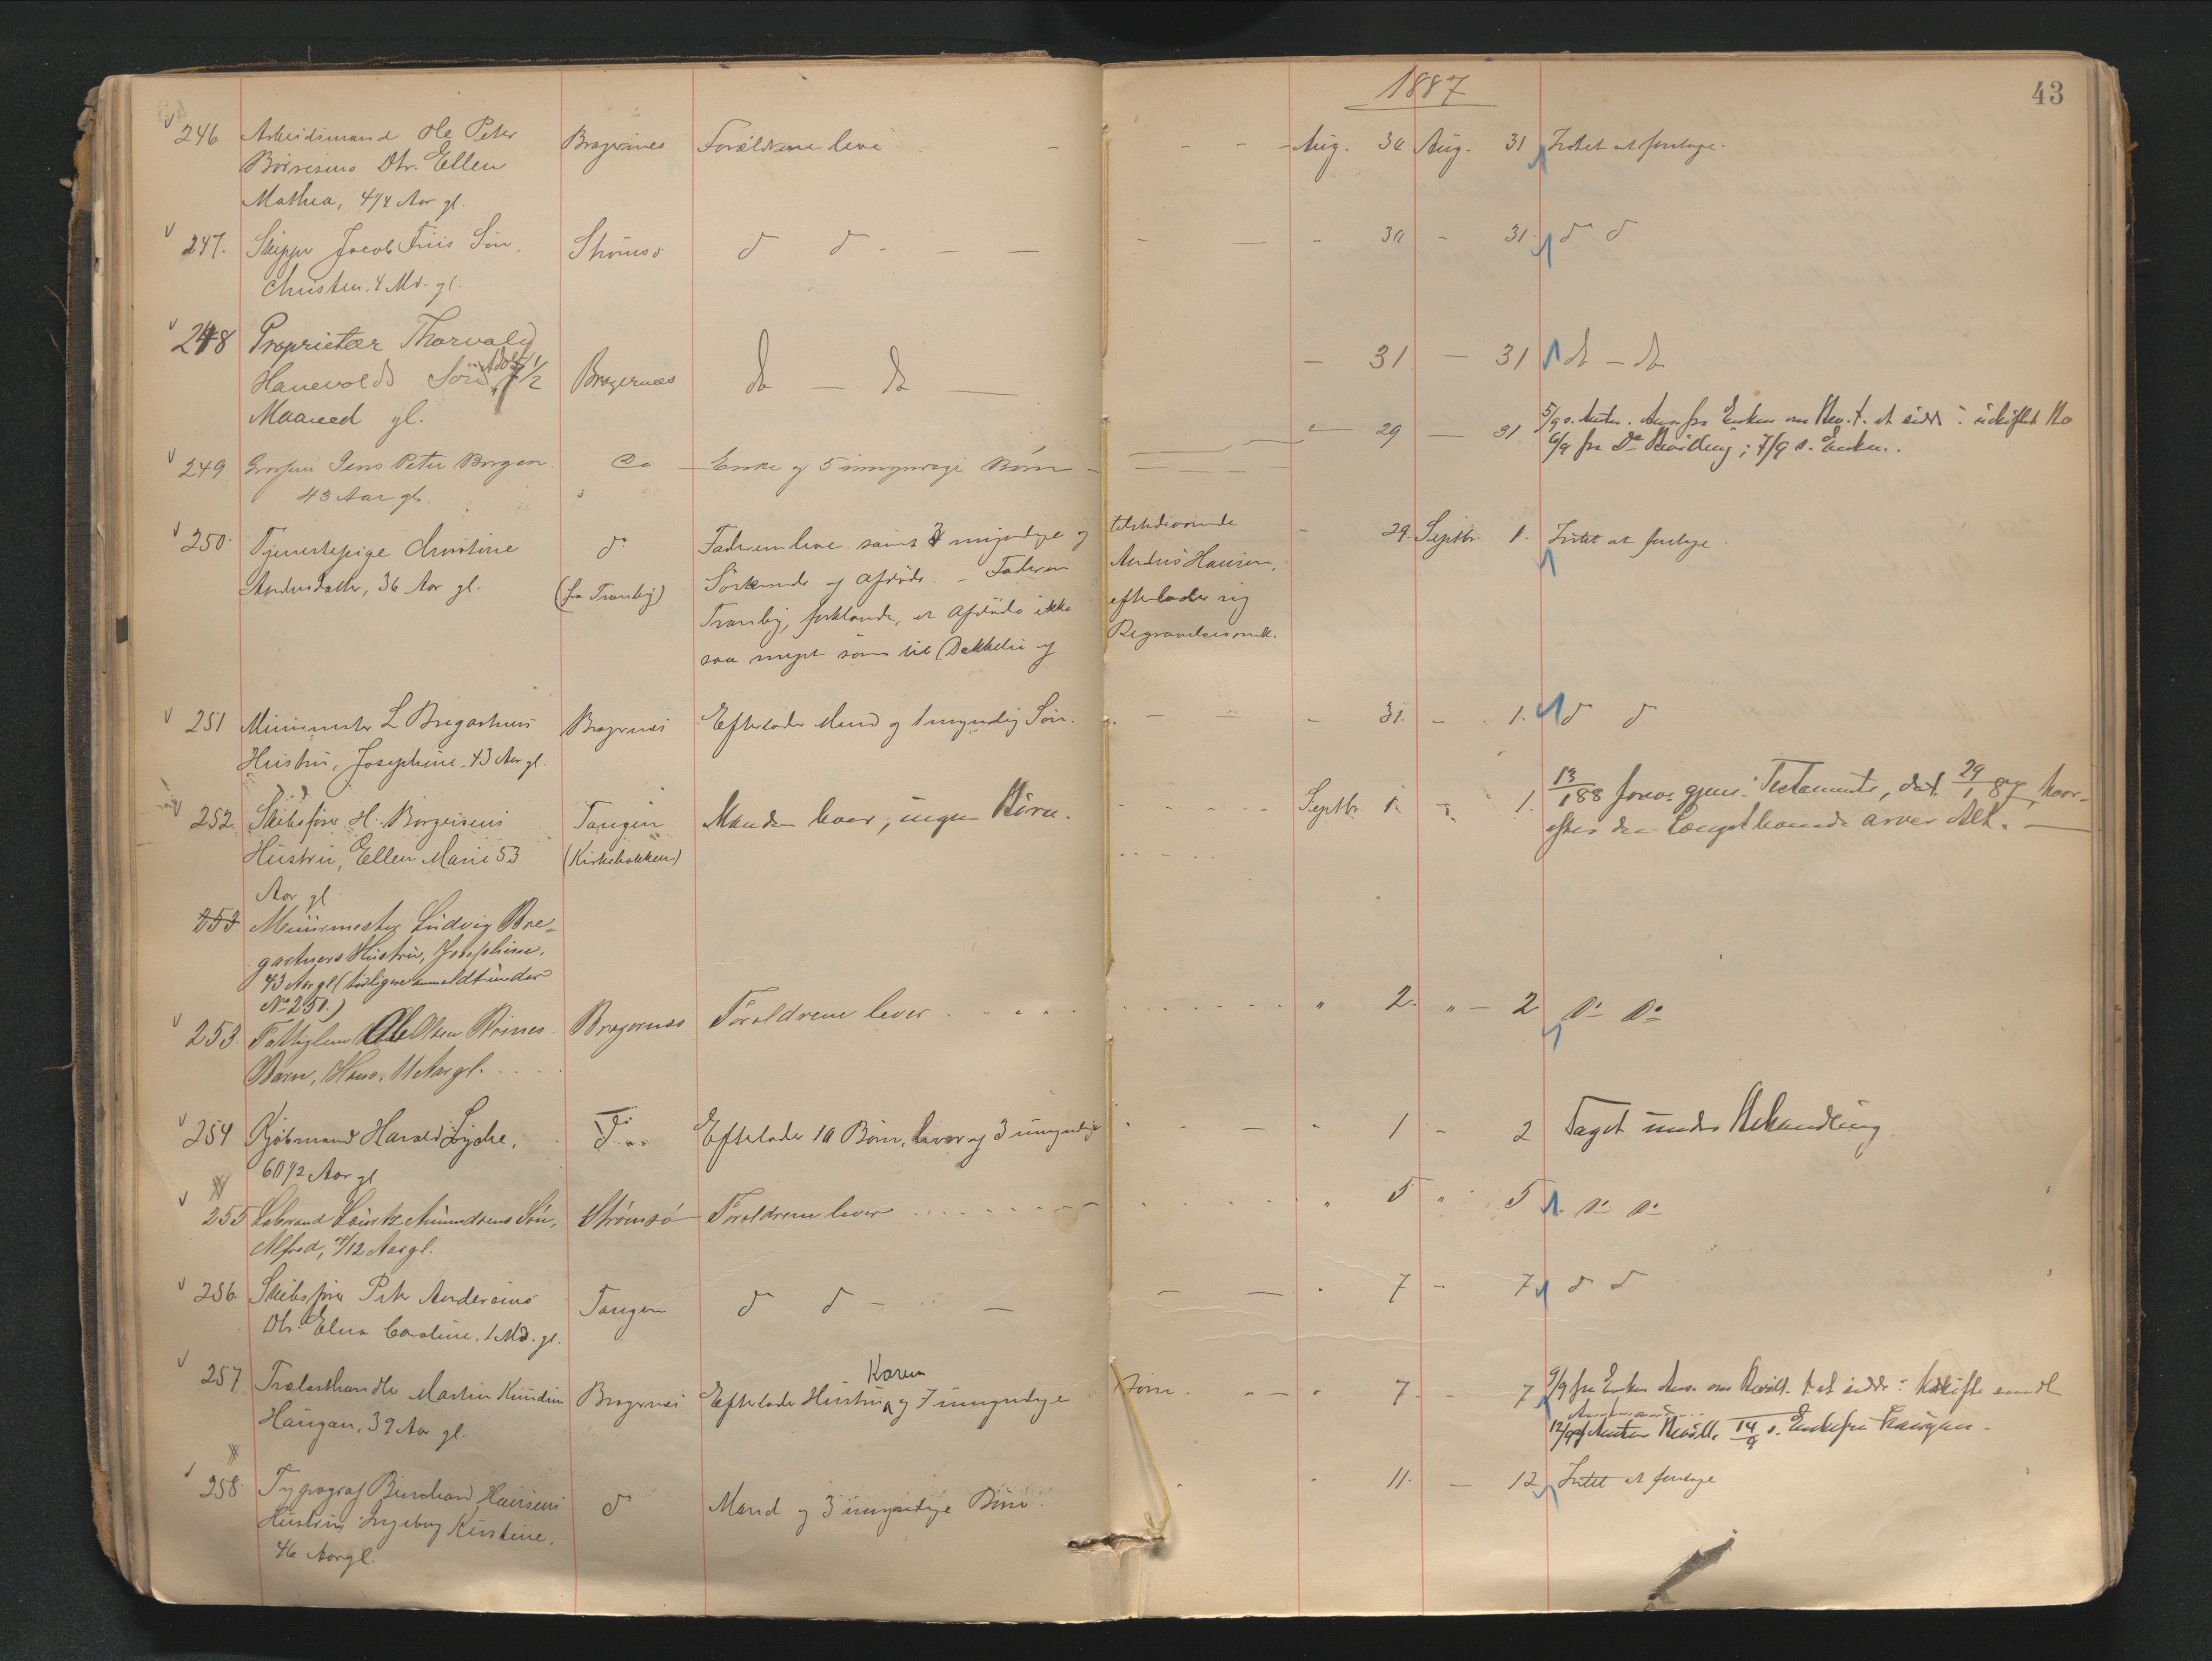 1887
43
246 Arbeidsmand Ole Peter Bragernes Forældrene leve - - - - Aug. 30 Aug. 31 Intet at foretage.
Børresens Dtr. Ellen
Mathea, 4 1/4 Aar gl.
247. Skipper Jacob Friis Søn, Strømsø d d - - - - 30 - 31. d d
Christen, 4 Md. gl.
248 Proprietær Thorvald
Hanevolds Søn Adolf 1/2 Bragernæs do - do - 31 - 31 do - do
Maaned gl.
249 Jens Peter Borgen Do Enke og 5 umyndige Børn - 29 - 31. 5/9 s. fra Enken om Bev. t. at sidde i uskiftet Bo
43 Aar gl. 6/9 fra Do Bevilling; 7/9 s. Enken.
250. Tjenestepige Christine do Faderen lever samt 3 myndige og tilstedeværende - 29. Septbr. 1. Intet at foretage.
Andersdatter, 36 Aar gl. (fra Tranby) Søskende af Afdøde. - Faderen Anders Hansen,
Tranby, forklarede, at Afdøde ikke efterlader sig
saa meget som til Dækkelse af Begravelsesomk.
251 Murmester L Bregartners Bragernes Efterlader Mand og 1 myndig Søn. - 31. - 1. d d
Hustru, Josephine. 43 Aar gl.
252. Skibsfører H. Borgersens Tangen Manden lever, ingen Børn. - - - Septbr. 1. - 1. 13/1 88 gjens. Testamente, dat. 29/1 87, hvor-
Hustru, Ellen Marie 53 (Kirkebakken) efter den Længstlevende arver Alt.
Aar gl.
253 Murmester Ludvig Bre-
gartners Hustru, Josephine,
43 Aar gl (tidligere anmeldt under
No 251.)
253. Fattiglem Ole Olsen Bragernæs Forældrene lever . . . . " 2. " - 2 Do Do
Barn, Hans. 11 Aar gl.
254 Kjøbmand Harald Lyche, Do Efterlader 10 Børn, hvoraf 3 umyndige - - - 1 - 2 Taget under Behandling
60 1/2 Aar gl
255 Lauritz Amundsens Søn, Strømsø Forældrene lever . . . . " 5 " 5 Do Do
Alfred, /12 Aar gl.
256 Skibsfører Peter Andersens Tangen d d - - - 7 - 7 d d
Dtr. Elna Caroline, 1 Md. gl.
257 Trælasthandler Martin Knudsen Bragernes Efterlader Hustru Karen og 7 umyndige Børn. - - 7. - 7 9/9 fra Enken om Bevill. t. at sidde i uskiftet
Haugan, 39 Aar gl. 12/9 Bevill. 14/9 s. Enkefru Haugan.
258 Typograf Hansens d Mand og 3 umyndige Børn. - 11. - 12 Intet at foretage
Hustru Ingeborg Kirstine,
46 Aar gl.